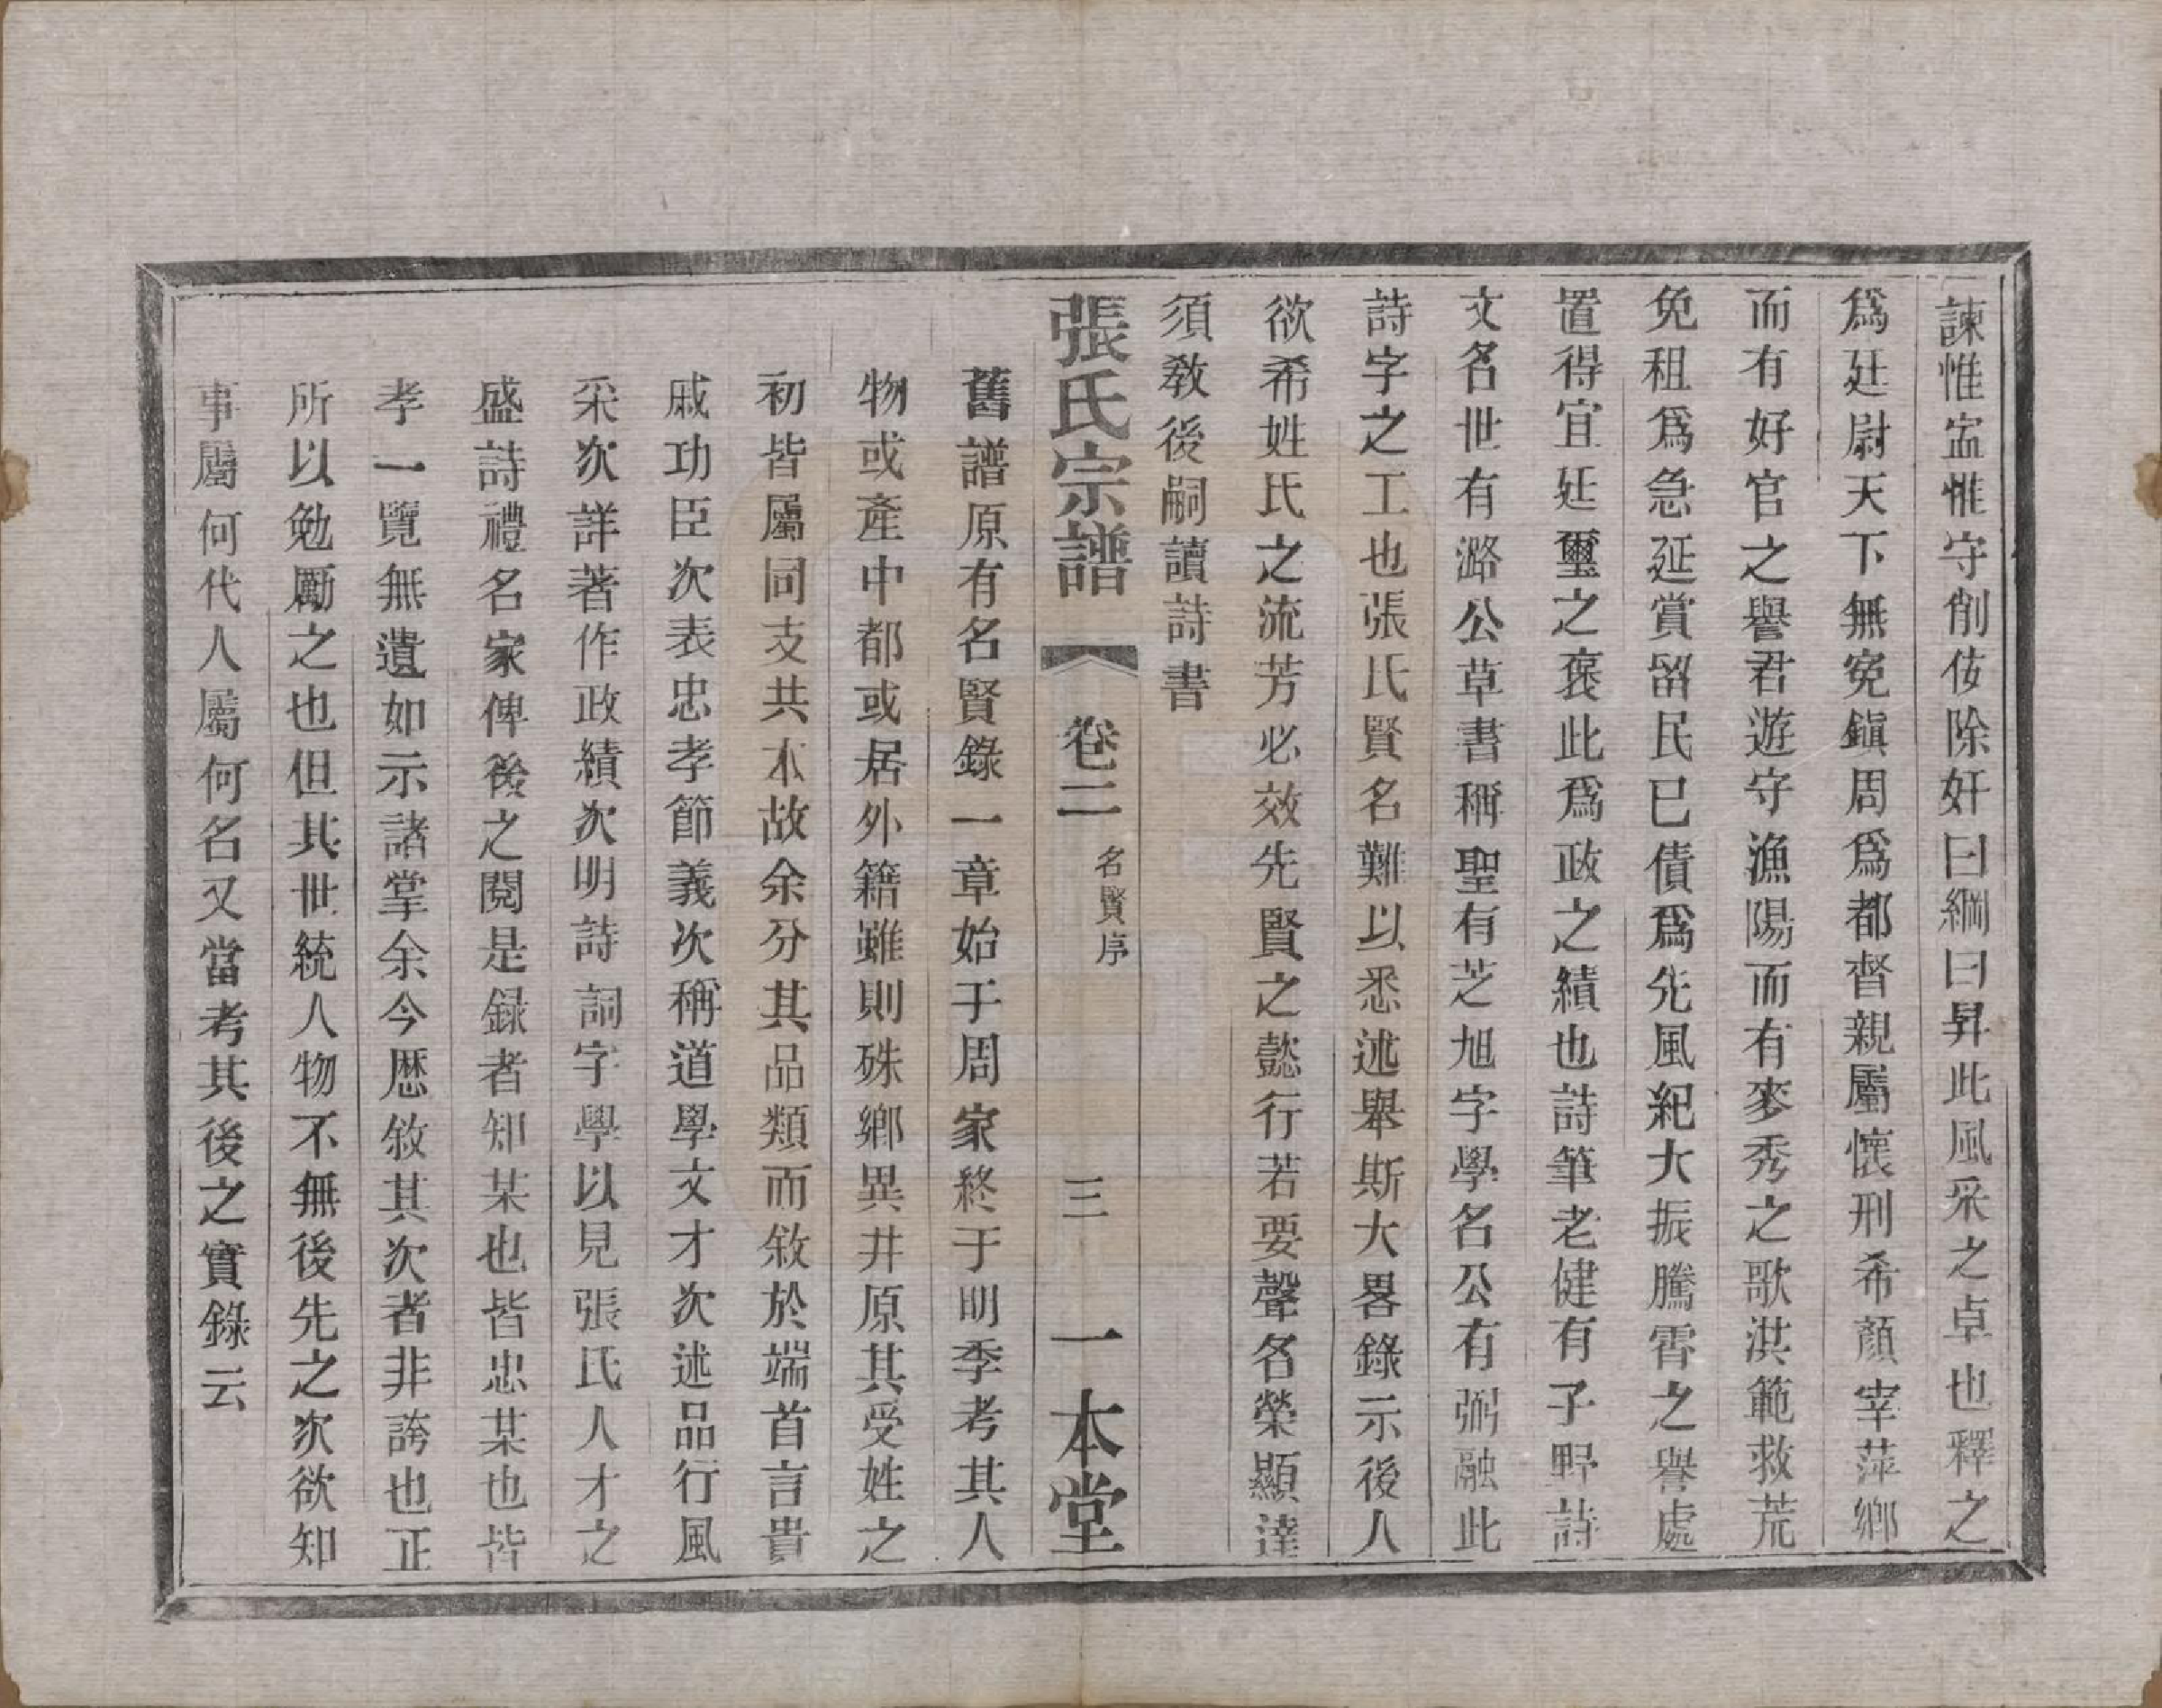 諫惟㝉惟守削伎除奸曰綱曰昇此風采之卓也釋之
爲廷尉天下無寃鎭周爲都督親屬懷刑希顏宰萍鄉
而有好官之譽君遊守漁陽而有麥秀之歌洪範救荒
免租爲急延賞留民已債爲先風紀大振騰霄之譽處
置得宜廷璽之褒此爲政之績也詩筆老健有子野詩
文名世有潞公草書稱聖有芝旭字學名公有弼融此
詩字之工也張氏賢名難以悉述舉斯大畧錄示後人
欲希姓氏之流芳必效先賢之懿行若要聲名榮顯達
須敎後嗣讀詩書
張氏宗譜 卷二 名賢序 三 一本堂
舊譜原有名賢錄一章始于周家終于明季考其人
物或產中都或居外籍雖則殊鄉異井原其受姓之
初皆屬同支共本故余分其品類而敘於端首言貴
戚功臣次表忠孝節義次稱道學文才次述品行風
采次詳著作政績次明詩詞字學以見張氏人才之
盛詩禮名家俾後之閱是録者知某也皆忠某也皆
孝一覽無遺如示諸掌余今歷敘其次者非誇也正
所以勉勵之也但其世統人物不無後先之次欲知
事屬何代人屬何名又當考其後之實錄云